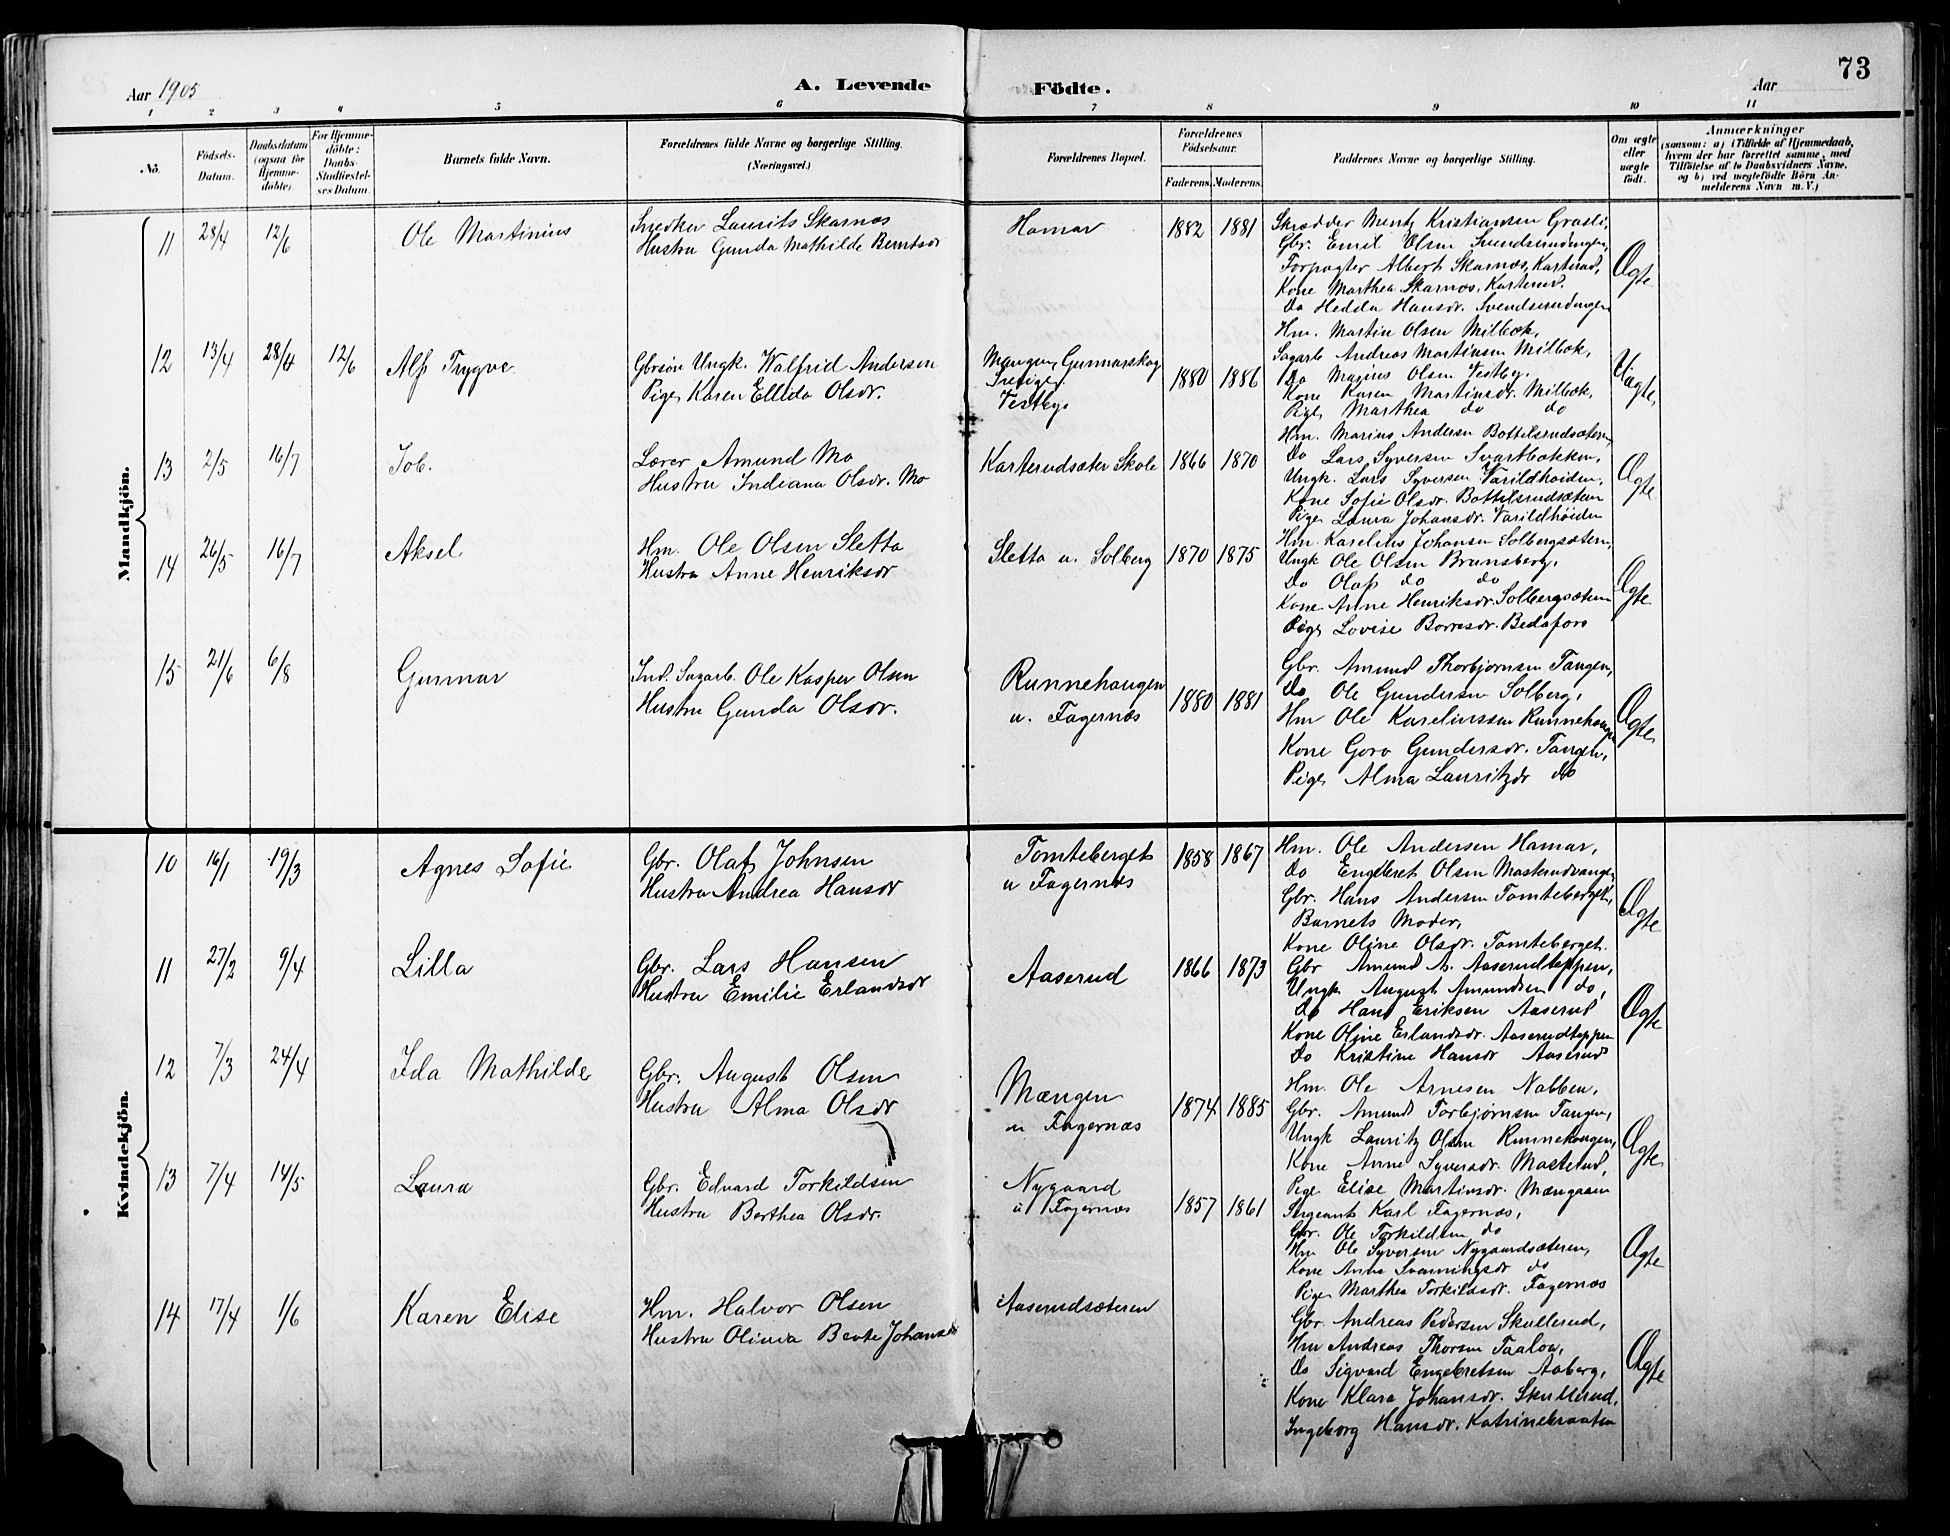 73
Aar 1905
A. Levende Födte.
Aar
1 2 3 4 5 6 7 8 9 10 11
No.
Födsels-Datum.
Daabsdatum (ogsaa för Hjemme-döbte).
For Hjemme-döbte: Daabs-Stadfæstel-ses Datum.
Barnets fulde Navn.
Forældrenes fulde Navne og borgerlige Stilling. (Næringsvei.)
Forældrenes Bopæl.
Forældrenes Födselsaar.
Faderens. Moderens.
Faddernes Navne og borgerlige Stilling.
Om ægte eller uægte født.
Anmærkninger
(saasom: a) i Tilfælde af Hjemmedaab,
hvem der har forrettet samme, med
Tilföielse af to Daabsvidners Navne,
og b) ved uægtefödte Börn An-
melderens Navn m. V.)
Mandkjön.
11 28/4 12/6 Ole Martinius
Snedker Laurits Skarnæs
Hustru Gunda Mathilde Berntsdr
Hamar 1882 1881
Skrædder Mentz Kristiansen Grasli,
Gbr. Emil Olsen Svendsrudengen,
Forpagter Albert Skarnæs, Karterud,
Kone Marthea Skarnæs, Karterud.
Do Hedda Hansdr. Svendserudengen
Ægte
12 13/4 28/4 12/6 Alf Trygve
Gbrsøn Ungk. Walfrid Andersen
Pige Karen Ellida Olsdr.
Mangen, Gunnarskog
Sverige
Vestby
1880 1886
Hm. Martin Olsen Milbæk,
Sagarb Andreas Martinsen Milbæk,
Do Marius Olsen Vestby.
Kone Karen Martinsdr. Milbæk,
Pige Marthea do do
Uægte
13 2/5 16/7 Job.
Lærer Amund Mo
Hustru Indiana Olsdr. Mo
Karterudsæter Skole 1866 1870
Hm. Marius Andersen Bottilsrudsæteren,
Do Lars Syversen Svartbækken,
Ungk. Lars Syversen Varildhøiden,
Kone Sofie Olsdr. Bottilsrudsætern
Pige Laura Johansdr. Varildhøiden
Ægte
14 26/5 16/7 Aksel
Hm. Ole Olsen Sletta
Hustru Anne Henriksdr
Sletta u. Solberg 1870 1875
Hm. Karelius Johansen Solbergsætern,
Ungk Ole Olsen Brunsberg,
Do Olaf do do
Kone Anne Henriksdr. Solbergsætern
Pige Lovise Borresdr. Bedafors
Ægte
15 21/6 6/8 Gunnar
Ind. Sagarb. Ole Kasper Olsen
Hustru Gunda Olsdr.
Runnehaugen
u. Fagernæs
1880 1881
Gbr. Amund Thorbjørnsen Tangen,
Do Ole Gundersen Solberg,
Hm Ole Karelinssen Runnehaugen
Kone Gora Gundersdr. Tangen,
Pige Alma Lauritzdr do
Ægte
Kvindekjön.
10 16/1 19/3 Agnes Sofie
Gbr. Olaf Johnsen
Hustru Andrea Hansdr
Tomteberget
u Fagernæs
1858 1867
Hm. Ole Andersen Hamar,
Do Engebret Olsen Masterudvangen
Gbr. Hans Andersen Tomteberget,
Barnets Moder,
Kone Oline Olsdr. Tomteberget.
Ægte
11 27/2 9/4 Lilla
Gbr. Lars Hansen
Hustru Emilie Erlandsdr
Aaserud 1866 1873
Gbr Amund A. Aaserudtoppen,
Ungk August Amundsen do,
Do Hans Eriksen Aaserud
Kone Oline Erlandsdr. Aaserudtoppen
Do Kristine Hansdr Aaserud
Ægte
12 7/3 24/4 Ida Mathilde
Gbr. August Olsen
Hustru Alma Olsdr
Mængen
u Fagernæs
1874 1885
Hm. Ole Arnesen Nabben,
Gbr. Amund Torbjørnsen Tangen,
Ungk Lauritz Olsen Runnehaugen,
Kone Anne Syversdr. Masterud,
Pige Elise Martinsdr. Mængaaen
Ægte
13 7/4 14/5 Laura
Gbr. Edvard Torkildsen
Hustru Berthea Olsdr.
Nygaard
u Fagernæs
1857 1861
Sergeant Karl Fagernæs,
Gbr. Ole Torkildsen do
Hm Ole Syversen Nygaardsæteren,
Kone Anne Svenningsdr do
Pige Marthea Torkildsdr. Fagernæs
Ægte
14 17/4 1/6 Karen Elise
Hm. Halvor Olsen
Hustru Olinva Beate Johansdr
Aaserudsæteren
Gbr. Andreas Pedersen Skullerud,
Hm Andreas Thorsen Taaloa,
Do Sigvard Engebretsen Aaberg,
Kone Klara Johansdr. Skullerud,
Ingeborg Hansdr. Katrinebraaten
Ægte